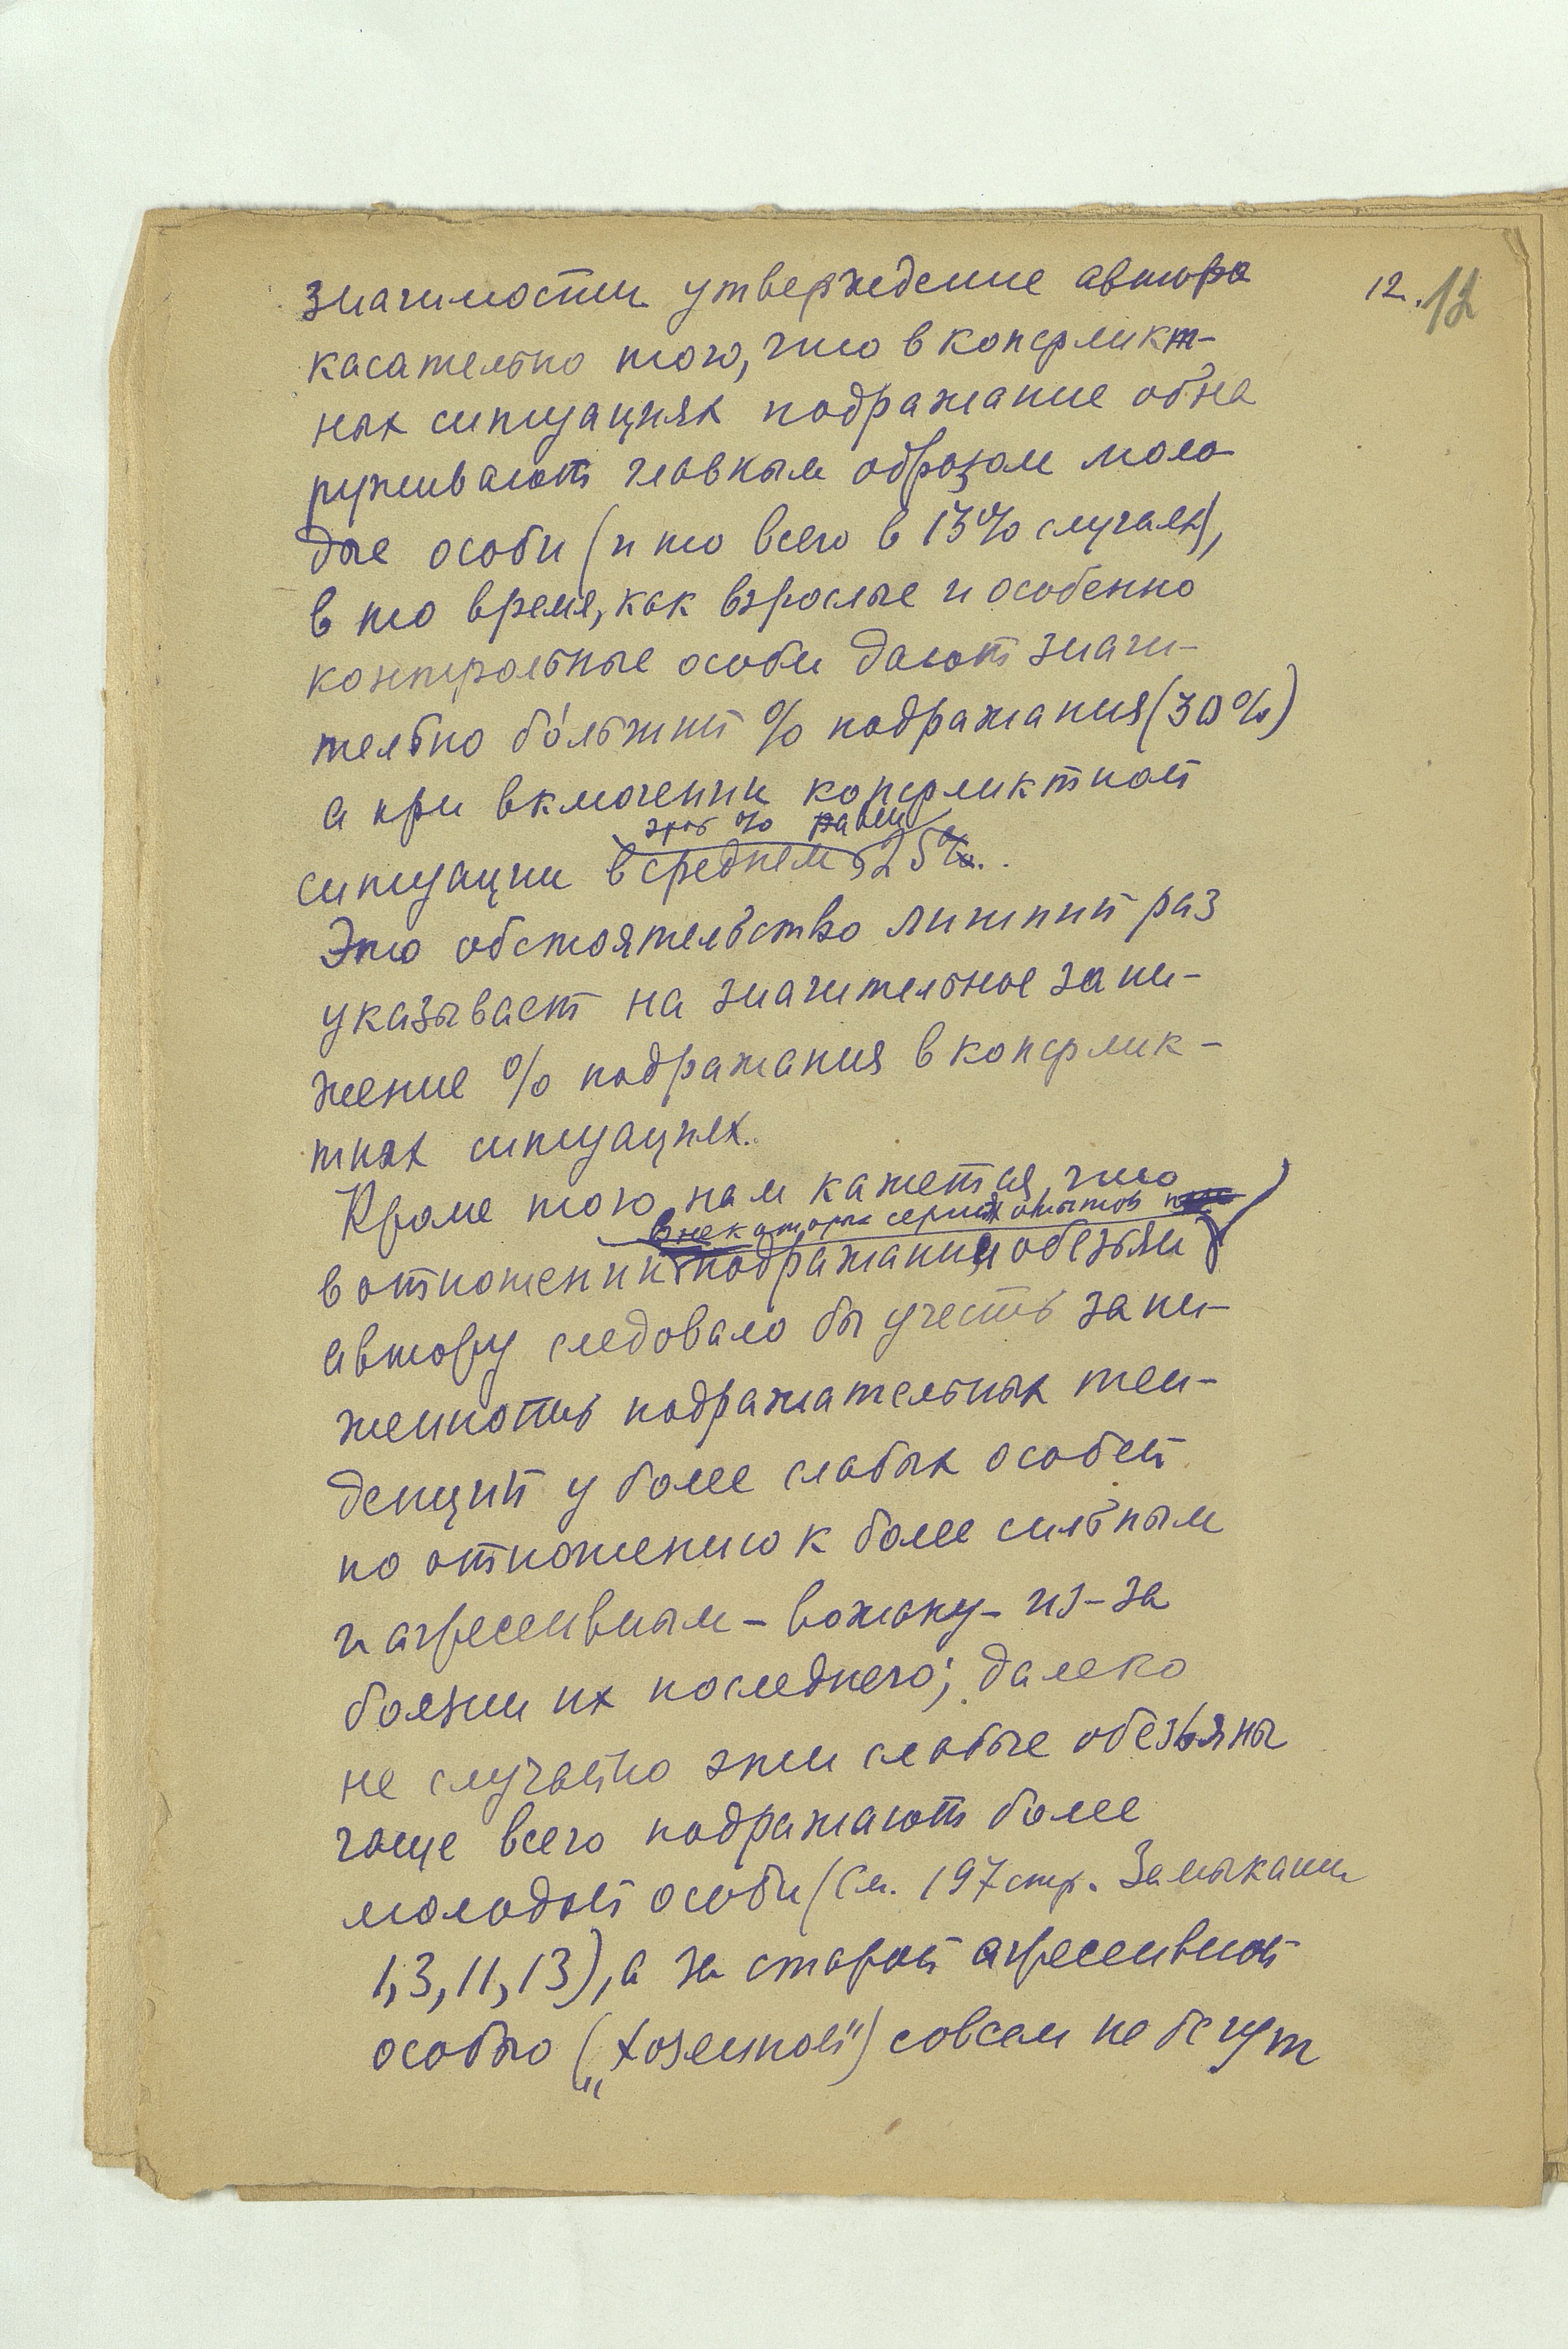 12. 12
значимости утверждение автора
касательно того, что в конфликт-
ных ситуациях подражание обна
руживают главным образом моло
дые особи (и то всего в 13% случаев),
в то время, как взрослые и особенно
контрольные особи дают значи-
тельно бо́льший % подражания (30%)
а при включении конфликтной
этот % равен
ситуации в среднем 25%.
Это обстоятельство лишний раз
указывает на значительное зани-
жение % подражания в конфлик-
тных ситуациях.
Кроме того, нам кажется, что
в некоторых сериях опытов
в отношении подражания обезьян
автору следовало бы учесть зани-
женность подражательных тен-
денций у более слабых особей
по отношению к более сильным
и агрессивным - вожаку - из-за
боязни их последнего; далеко
не случайно эти слабые обезьяны
чаще всего подражают более
молодой особи (См. 197 стр. Замыкании
1, 3, 11, 13), а за старой агрессивной
особью („хозяиной") совсем не бегут